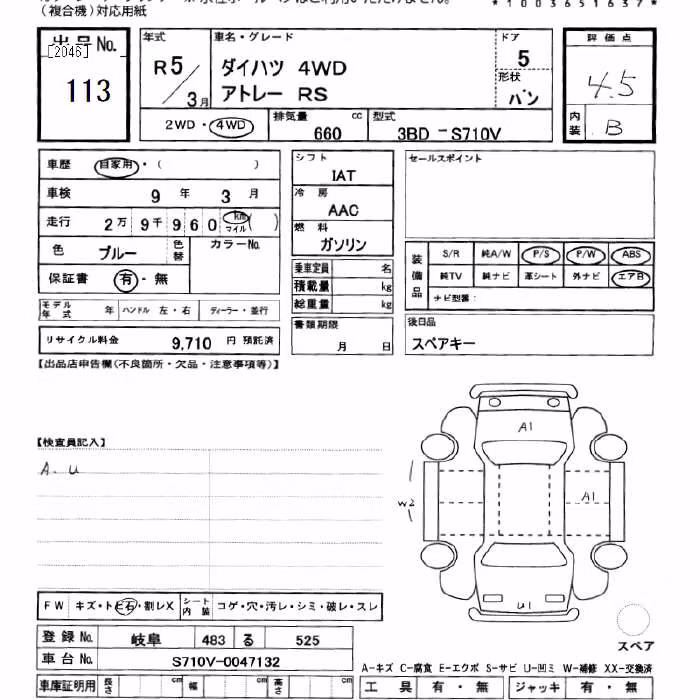 (複合機)対応用紙
*1003651637*
出品No.
[2046]
113
年式
R5/3月
車名・グレード
ダイハツ 4WD
アトレー RS
ドア
5
形状
バン
評価点
4.5
内装
B
2WD・4WD
排気量
660
cc
型式
3BD-S710V
車歴
自家用・( )
車検
9年3月
走行
2万9千960
km
マイル
( )
色
ブルー
色替
カラーNo.
保証書
有・無
モデル年式
年
ハンドル 左・右
ディーラー・並行
リサイクル料金
9,710 円 預託済
シフト
IAT
冷房
AAC
燃料
ガソリン
乗車定員 名
積載量 kg
総重量 kg
書類期限
月 日
セールスポイント
装備品
S/R 純A/W P/S P/W ABS
純TV 純ナビ 革シート 外ナビ エアB
ナビ型番:
後日品
スペアキー
【出品店申告欄(不良箇所・欠品・注意事項等)】
【検査員記入】
A. U
A1
A1
W2
U1
スペア
FW キズ・トビ石・割レX
シート内装
コゲ・穴・汚レ・シミ・破レ・スレ
登録No. 岐阜 483 る 525
車台No. S710V-0047132
車庫証明用
長さ cm
幅 cm
高さ cm
A-キズ C-腐食 E-エクボ S-サビ U-凹ミ W-補修 XX-交換済
工具 有・無
ジャッキ 有・無